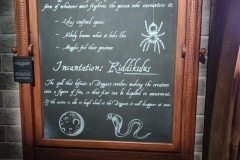 form of whatever most frightens the person who encounters it.
- Likes confined spaces
- Nobody knows what it looks like
- Muggles feel their presence
Incantation: Riddikulus
The spell that defeats a Boggart involves making the creature
into a figure of fun, so that fear can be dispelled in amusement.
If the caster is able to laugh aloud at the Boggart, it will disappear at once.